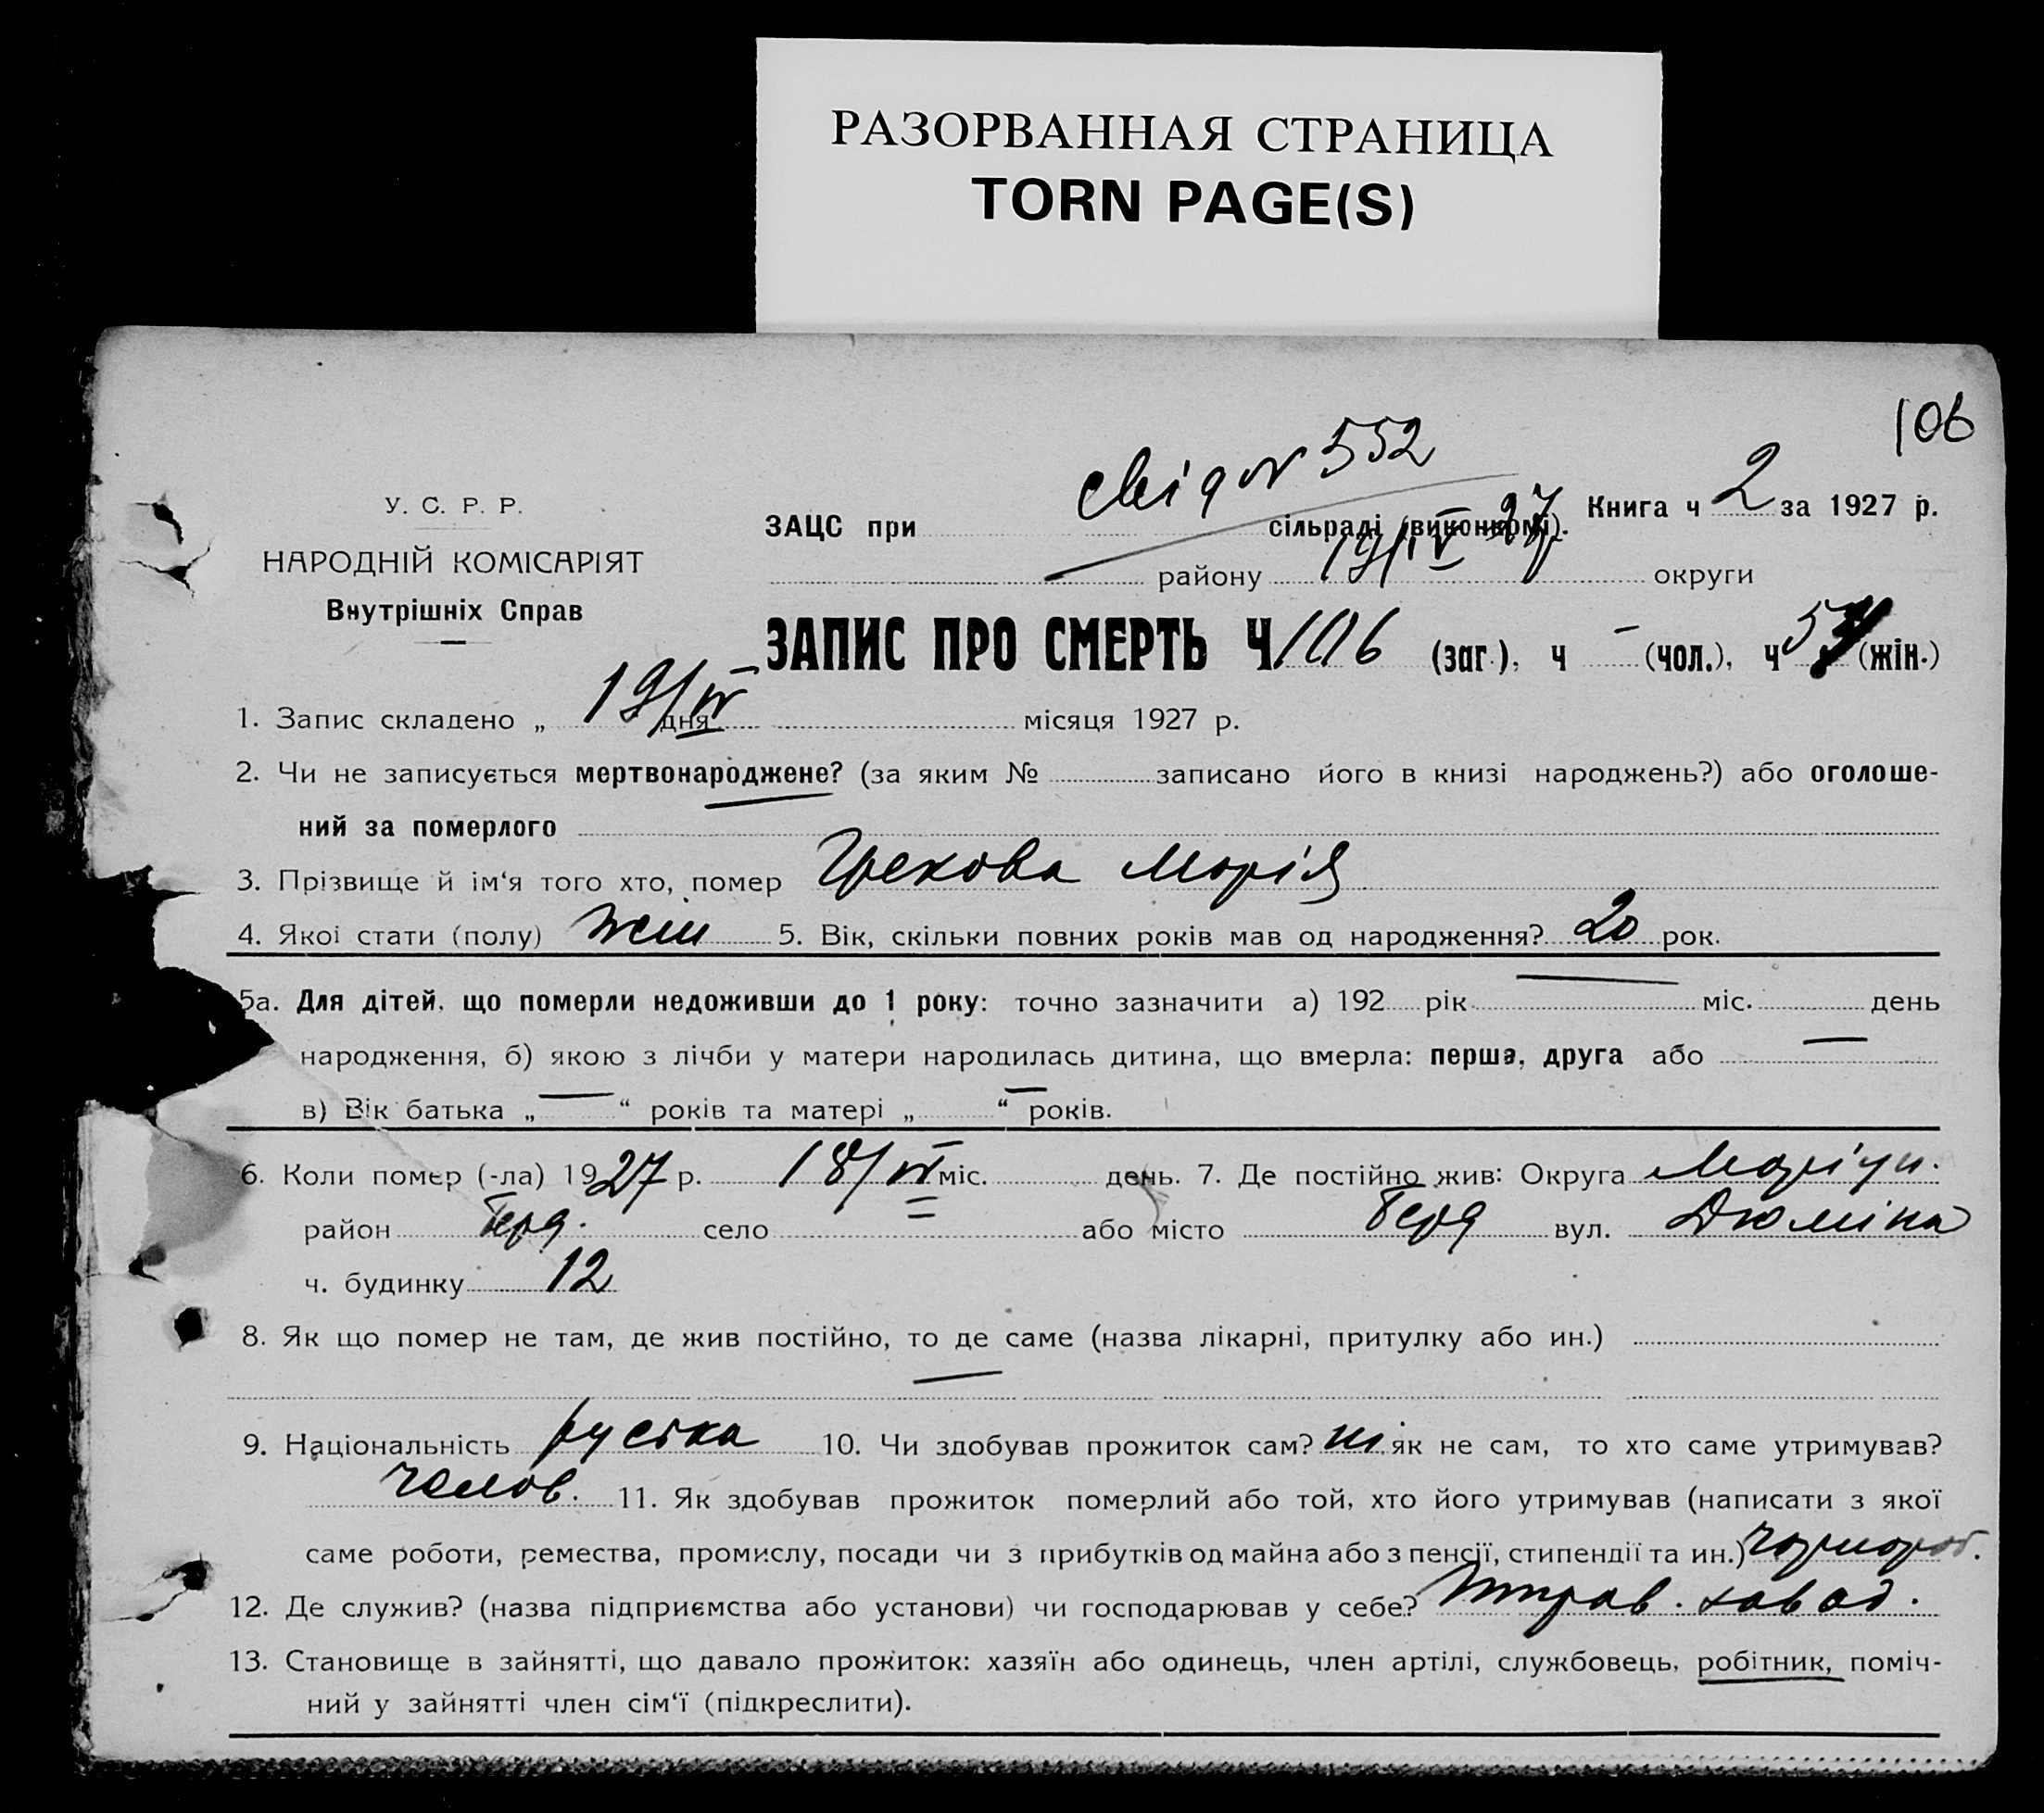 РАЗОРВАННАЯ СТРАНИЦА
TORN PAGE(S)
106
свід N 552
У. С. Р. Р.
НАРОДНІЙ КОМІСАРІЯТ
Внутрішніх Справ
ЗАЦС при сільраді (виконкомі). Книга ч 2 за 1927 р.
району 19/IV 27 округи
ЗАПИС ПРО СМЕРТЬ Ч 106 (заг.), ч – (чол.), ч (жін.)
1. Запис складено „ 19/IV дня місяця 1927 р.
2. Чи не записується мертвонароджене? (за яким № записано його в книзі народжень?) або оголоше-
ний за померлого
3. Прізвище й ім‘я того хто, помер Грекова Марія
4. Якоі стати (полу) жін 5. Вік, скільки повних років мав од народження? 20 рок.
5а. Для дітей, що померли недоживши до 1 року: точно зазначити а) 192 рік — міс. день
народження, б) якою з лічби у матери народилась дитина, що вмерла: перша, друга або —
в) Вік батька „ — “ років та матері „ — “ років.
6. Коли помер (-ла) 1927 р. 18/IV міс. день. 7. Де постійно жив: Округа Маріуп.
район Берд. село = або місто Берд вул. Дюміна
ч. будинку 12
8. Як що помер не там, де жив постійно, то де саме (назва лікарні, притулку або ин.)
—
9. Національність руська 10. Чи здобував прожиток сам? ні як не сам, то хто саме утримував?
чолов. 11. Як здобував прожиток померлий або той, хто його утримував (написати з якої
саме роботи, ремества, промислу, посади чи з прибутків од майна або з пенсії, стипендії та ин.) чорнороб.
12. Де служив? (назва підприємства або установи) чи господарював у себе? завод.
13. Становище в зайнятті, що давало прожиток: хазяїн або одинець, член артілі, службовець, робітник, поміч-
ний у зайнятті член сім‘ї (підкреслити).